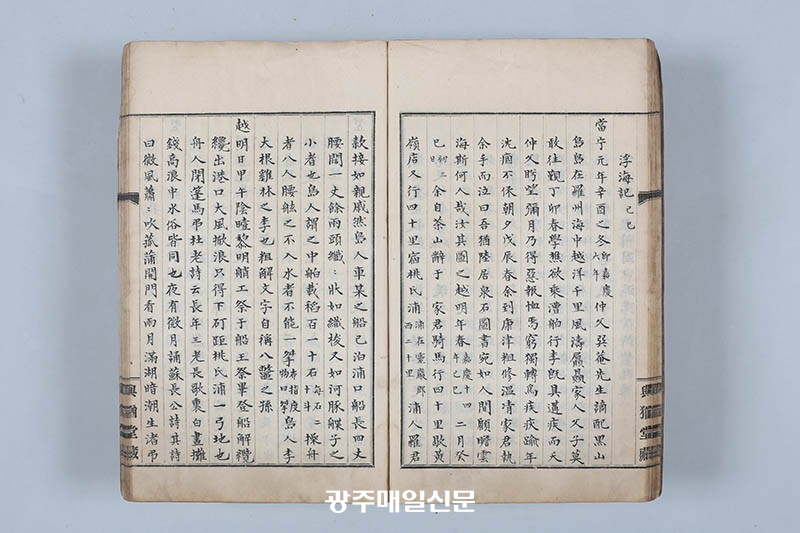 浮海記 己巳
當宁元年辛酉之冬 卽嘉慶六年 仲父巽菴先生謫配黑山
島島在羅州海中越洋千里風濤贔屭家人父子莫
敢往觀丁卯春學樵欲乘漕舶行李旣具遘疾而夭
仲父盻望彌月乃得惡報恤焉窮獨轉焉疾疢踰年
沈痼不保朝夕戊辰春余到康津粗修溫凊家君執
余手而泣曰吾猶陸居泉石圖書宛如人間顧瞻雲
海斯何人哉汝其圖之越明年春 嘉慶十四年己巳 二月癸
巳 初三日 余自茶山辭于 家君騎馬行四十里歇黃
嶺店又行四十里宿桃氏浦 浦在靈巖郡西二十里 浦人羅君
與猶堂藏
款接如親戚然島人車某之船已泊浦口船長四丈
腰闊一丈餘兩頭纖〻狀如織梭又如河豚艓子之
小者也島人謂之中舶載稻百一十石 每石二十斗 操舟
者八人腰舷之不入水者不能一 島人李
大根雞林之李也粗解文字自稱八鼈之孫
越明日甲午陰曀黎明艄工祭于船王祭畢登船解纜
纔出港口大風掀浪只得下矴距桃氏浦一弓地也
舟人閉篷馬弔杜老詩云長年三老長歌裏白晝攤
錢高浪中水俗皆同也夜有微月誦蘇長公詩其詩
曰微風蕭〻吹菰蒲開門看雨月滿湖暗潮生渚弔
與猶堂藏
광주매일신문